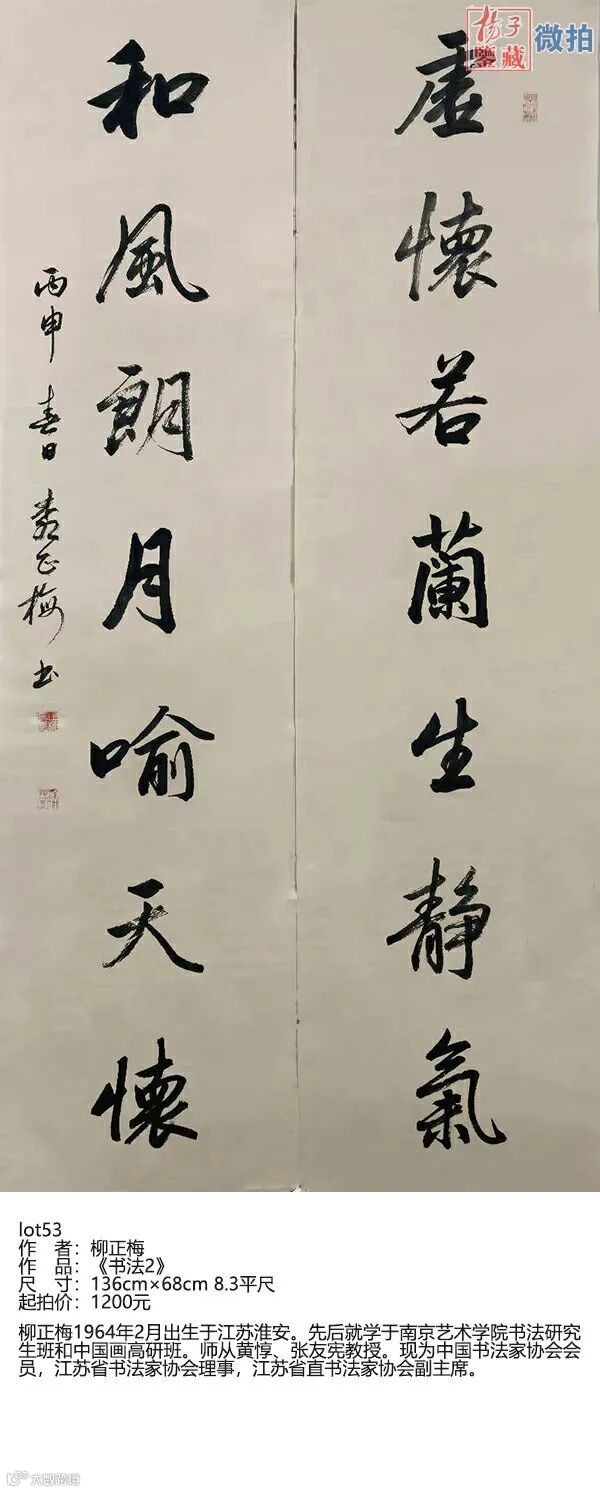 杨子
鉴藏
微拍
虚懷若蘭生静氣
和風朗月喻天懷
丙申春日柳正梅书
lot53
作 者：柳正梅
作 品：《书法2》
尺 寸：136cm×68cm 8.3平尺
起拍价：1200元
柳正梅1964年2月出生于江苏淮安。先后就学于南京艺术学院书法研究
生班和中国画高研班。师从黄惇、张友宪教授。现为中国书法家协会会
员，江苏省书法家协会理事，江苏省直书法家协会副主席。
大数跨境